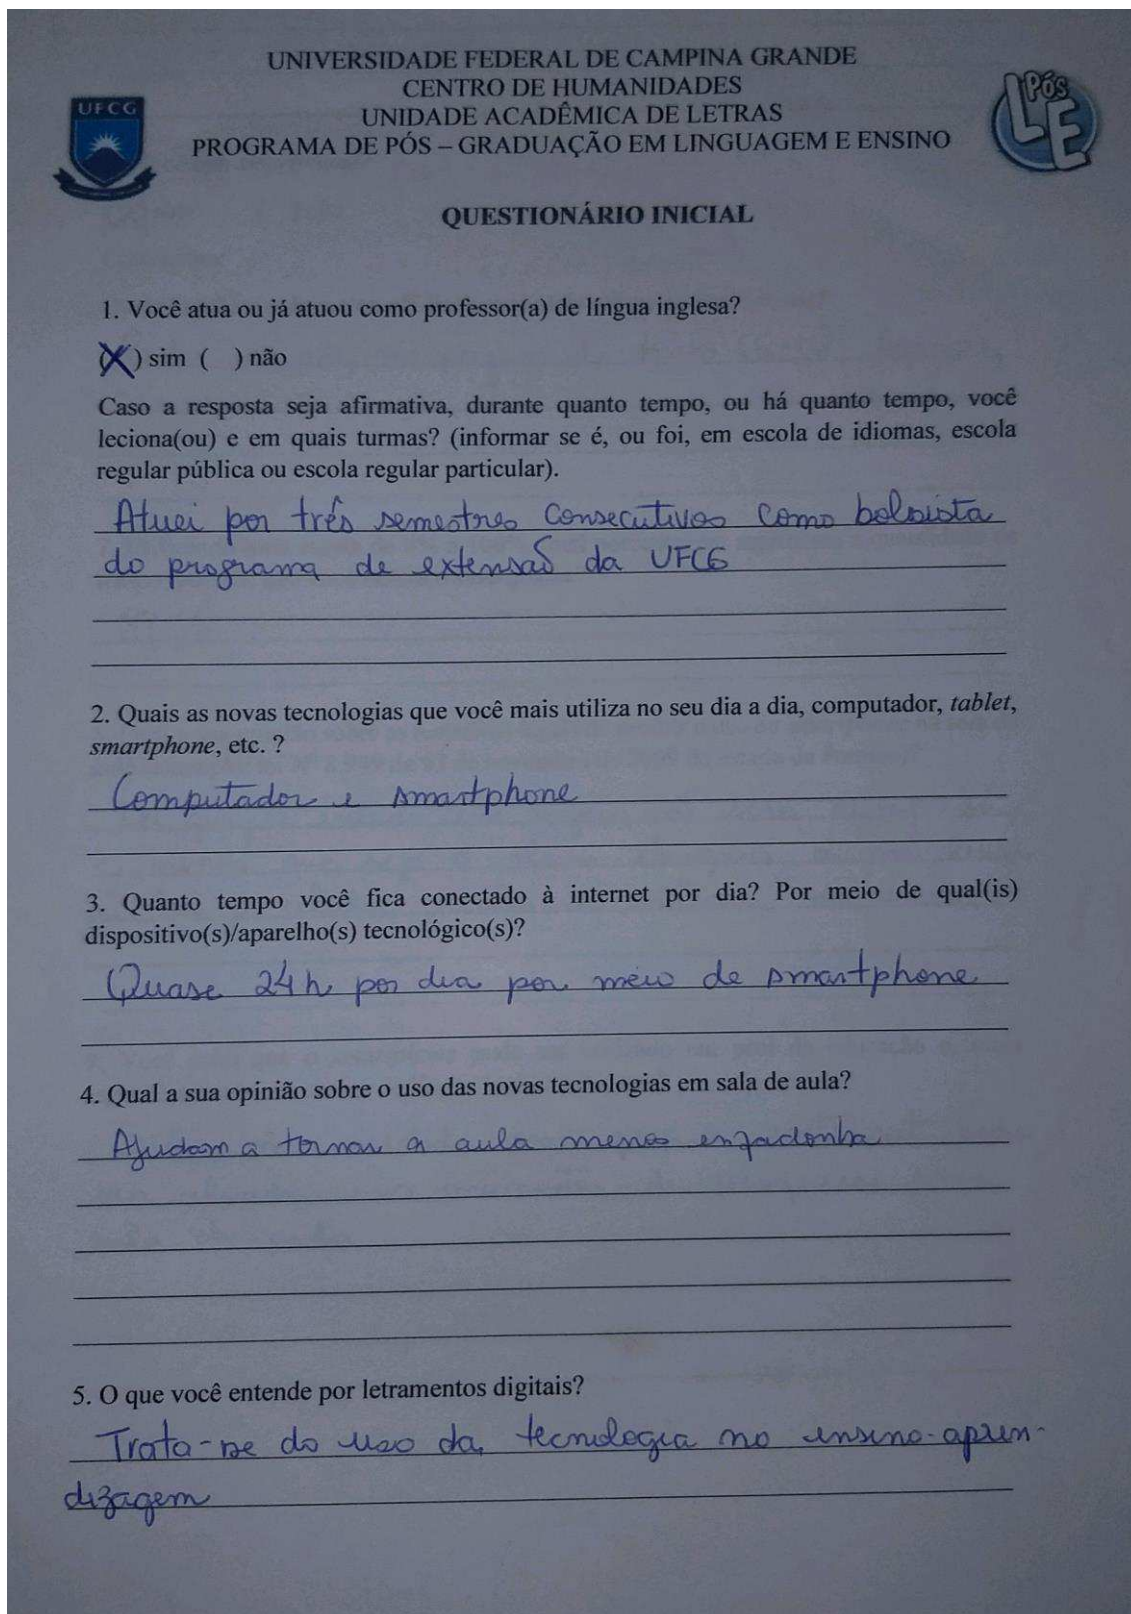 UNIVERSIDADE FEDERAL DE CAMPINA GRANDE
CENTRO DE HUMANIDADES
UNIDADE ACADÊMICA DE LETRAS
PROGRAMA DE PÓS – GRADUAÇÃO EM LINGUAGEM E ENSINO
UFCG
PÓS
LE
QUESTIONÁRIO INICIAL
1. Você atua ou já atuou como professor(a) de língua inglesa?
(X) sim ( ) não
Caso a resposta seja afirmativa, durante quanto tempo, ou há quanto tempo, você
leciona(ou) e em quais turmas? (informar se é, ou foi, em escola de idiomas, escola
regular pública ou escola regular particular).
Atuei por três semestres consecutivos como bolsista
do programa de extensão da UFCG
2. Quais as novas tecnologias que você mais utiliza no seu dia a dia, computador, tablet,
smartphone, etc. ?
Computador e smartphone
3. Quanto tempo você fica conectado à internet por dia? Por meio de qual(is)
dispositivo(s)/aparelho(s) tecnológico(s)?
Quase 24h por dia por meio de smartphone
4. Qual a sua opinião sobre o uso das novas tecnologias em sala de aula?
Ajudam a tornar a aula menos enfadonha
5. O que você entende por letramentos digitais?
Trata-se do uso da tecnologia no ensino-apren-
dizagem